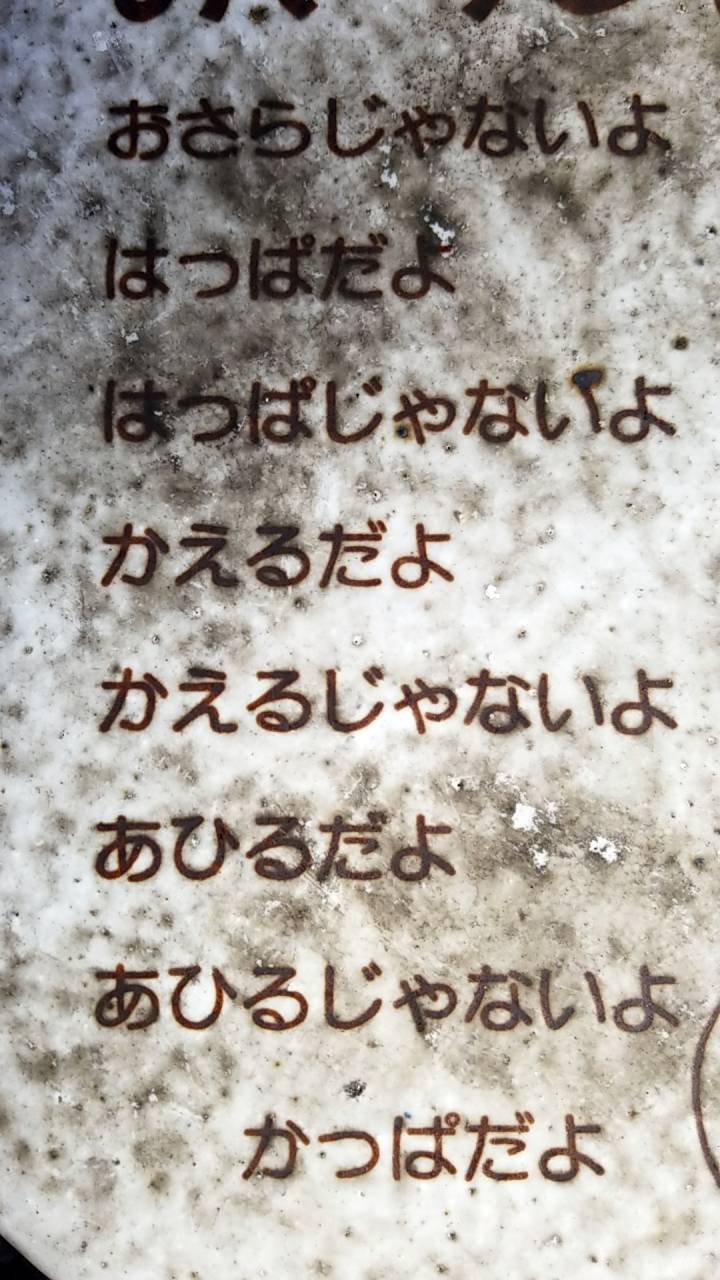 おさらじゃないよ
はっぱだよ
はっぱじゃないよ
かえるだよ
かえるじゃないよ
あひるだよ
あひるじゃないよ
かっぱだよ